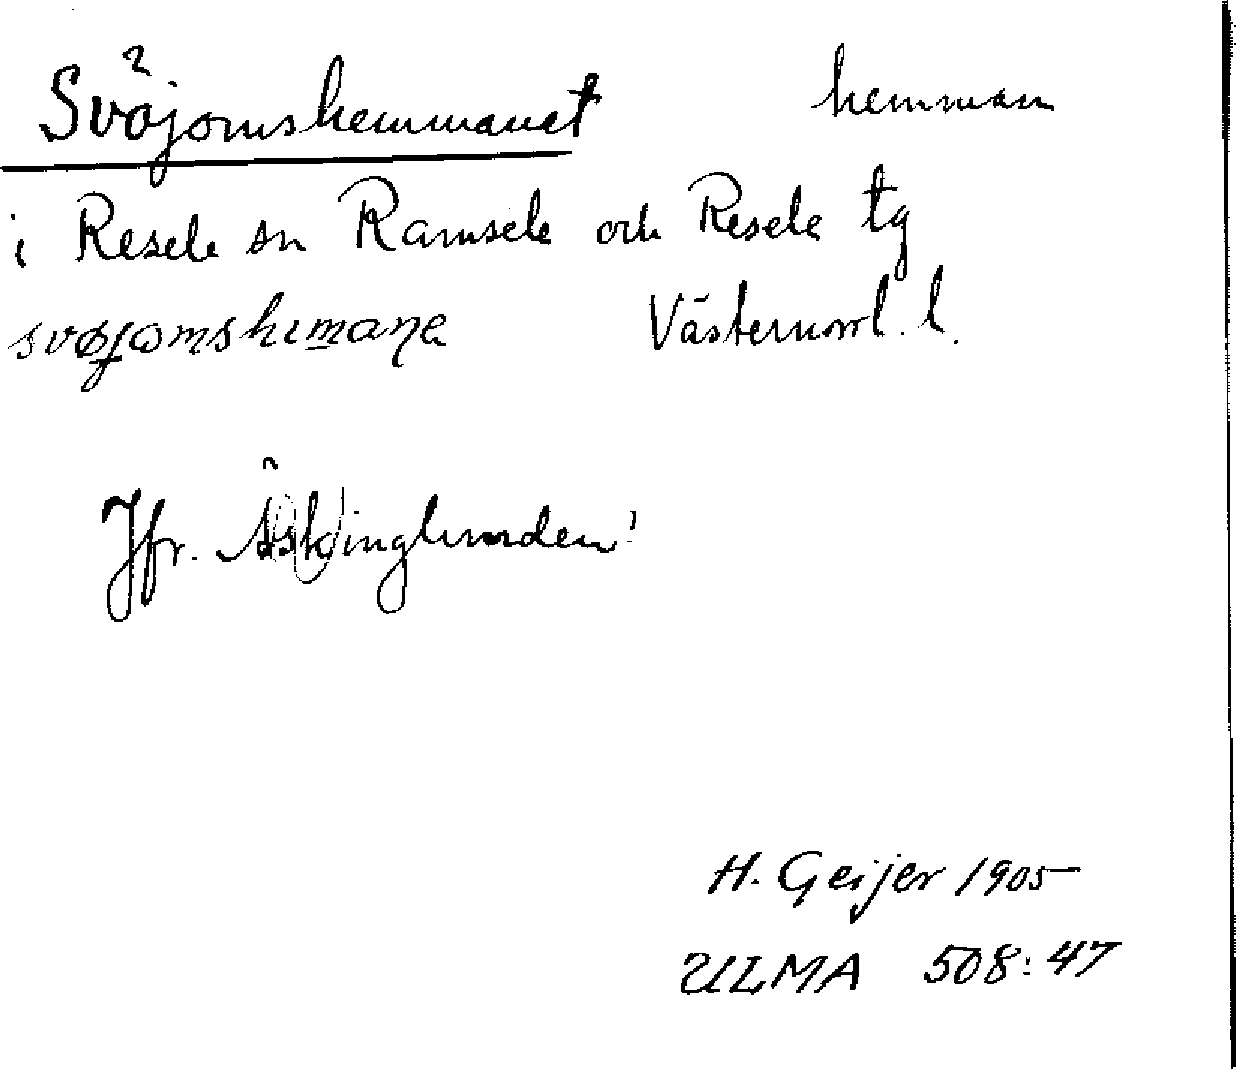 Svöjomshemmanet hemman
i Resele sn Ramsele och Resele tg
Västernorrl. l.
Jfr. Äskinglunden!
H. Geijer 1905
ULMA 508:47